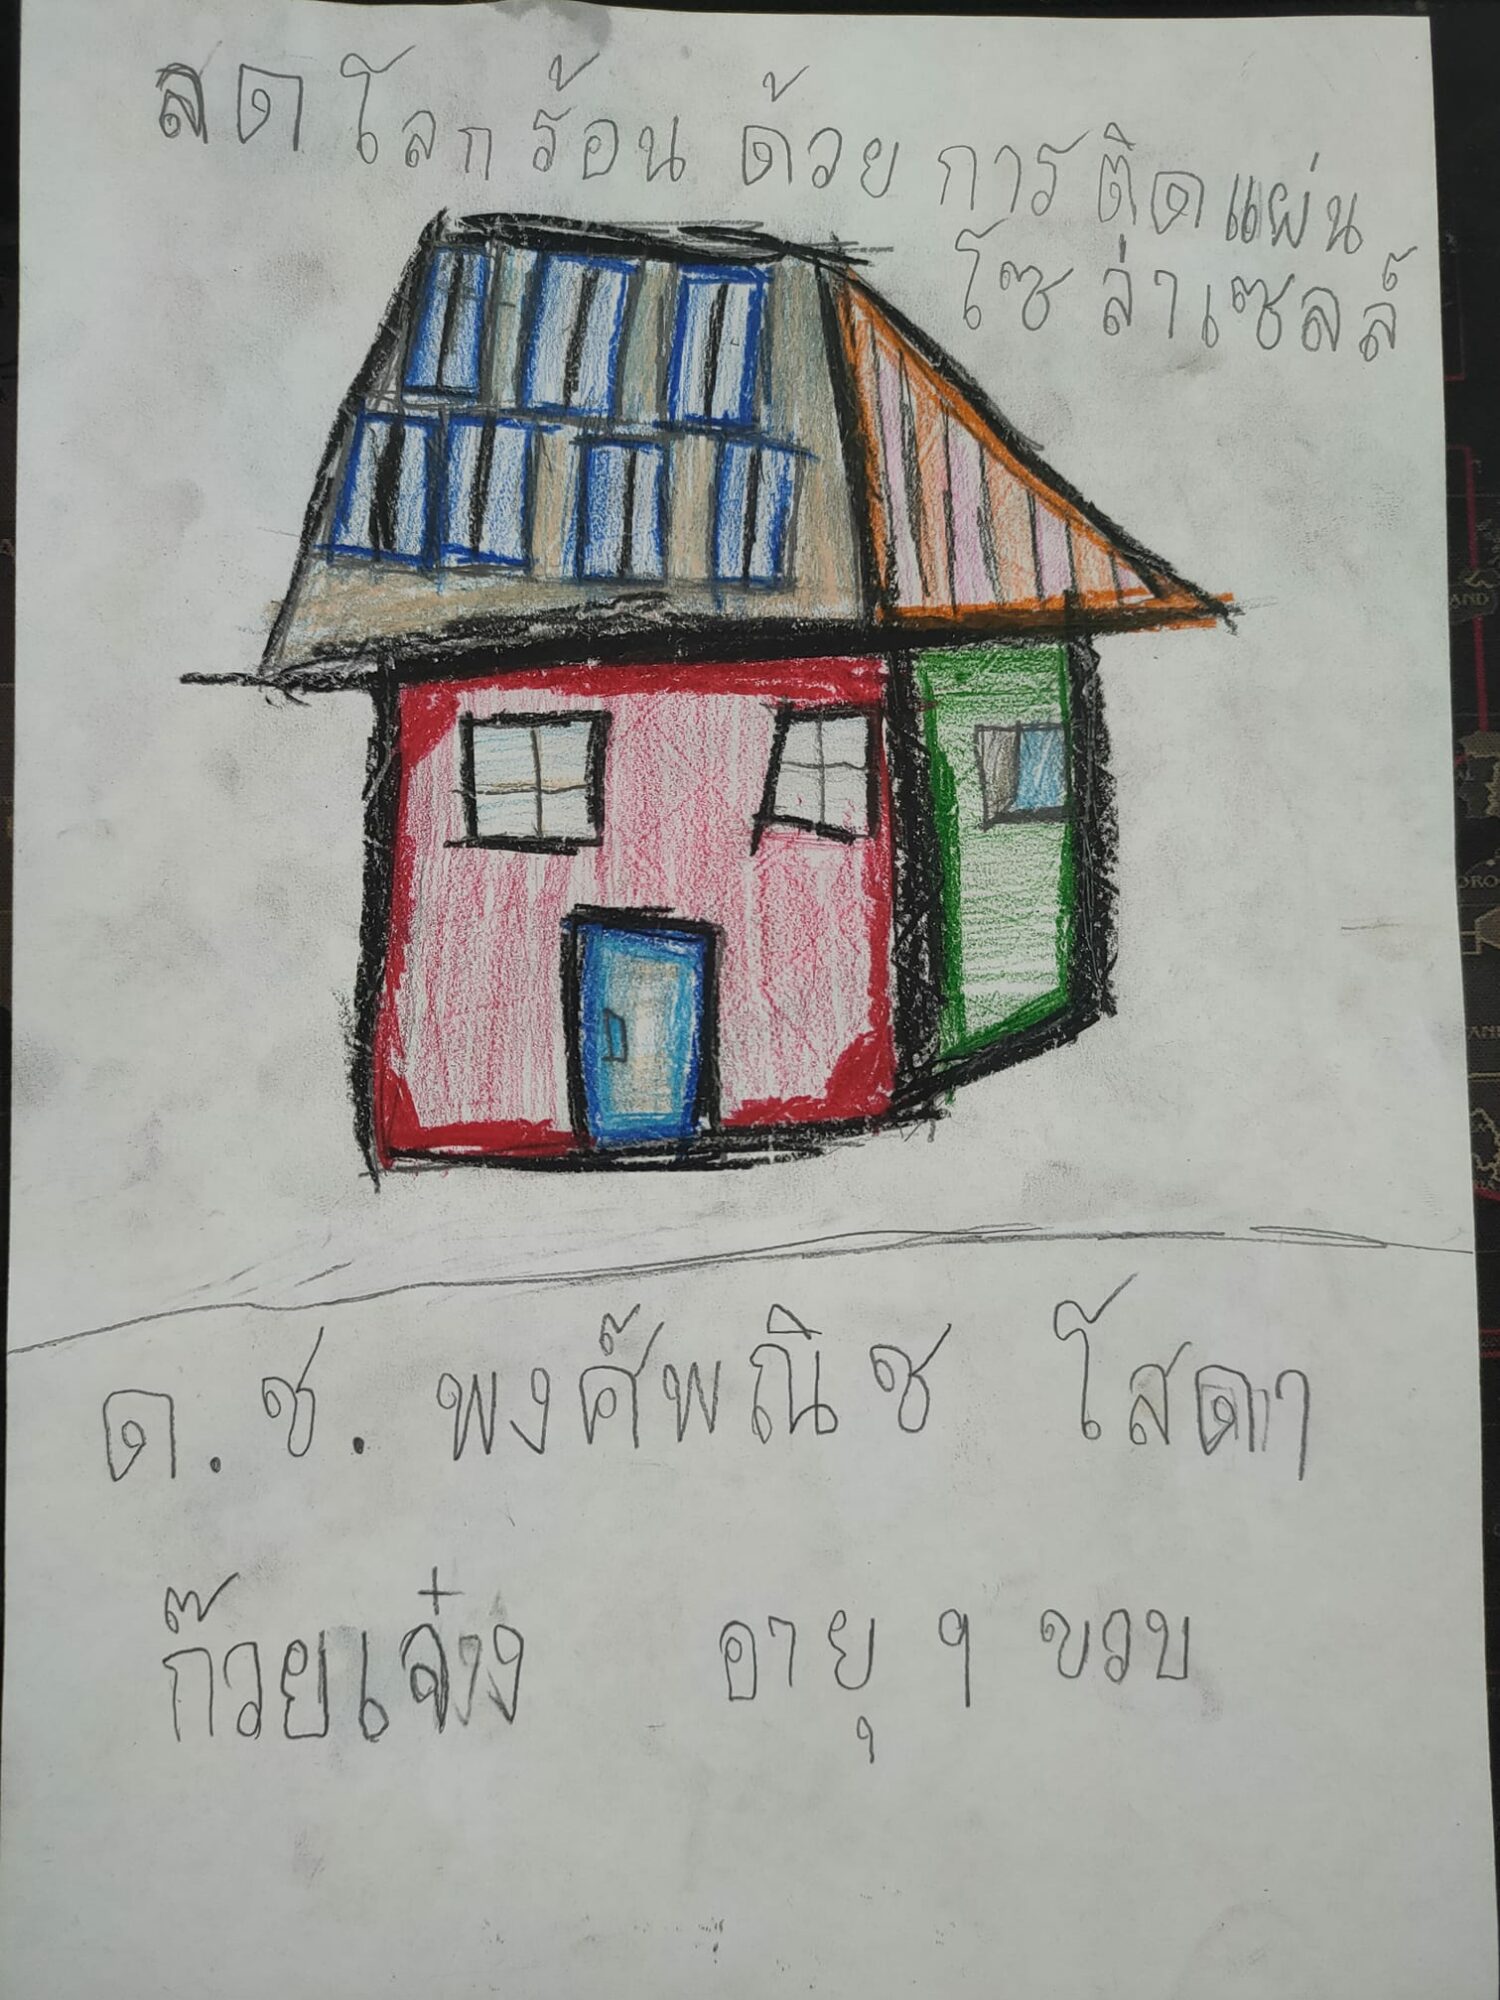 ลดโลกร้อนด้วยการติดแผ่น
โซล่าเซลล์
ด.ช. พงศ์พณิช โสดา
ก๊วยเจ๋ง อายุ ๆ ขวบ